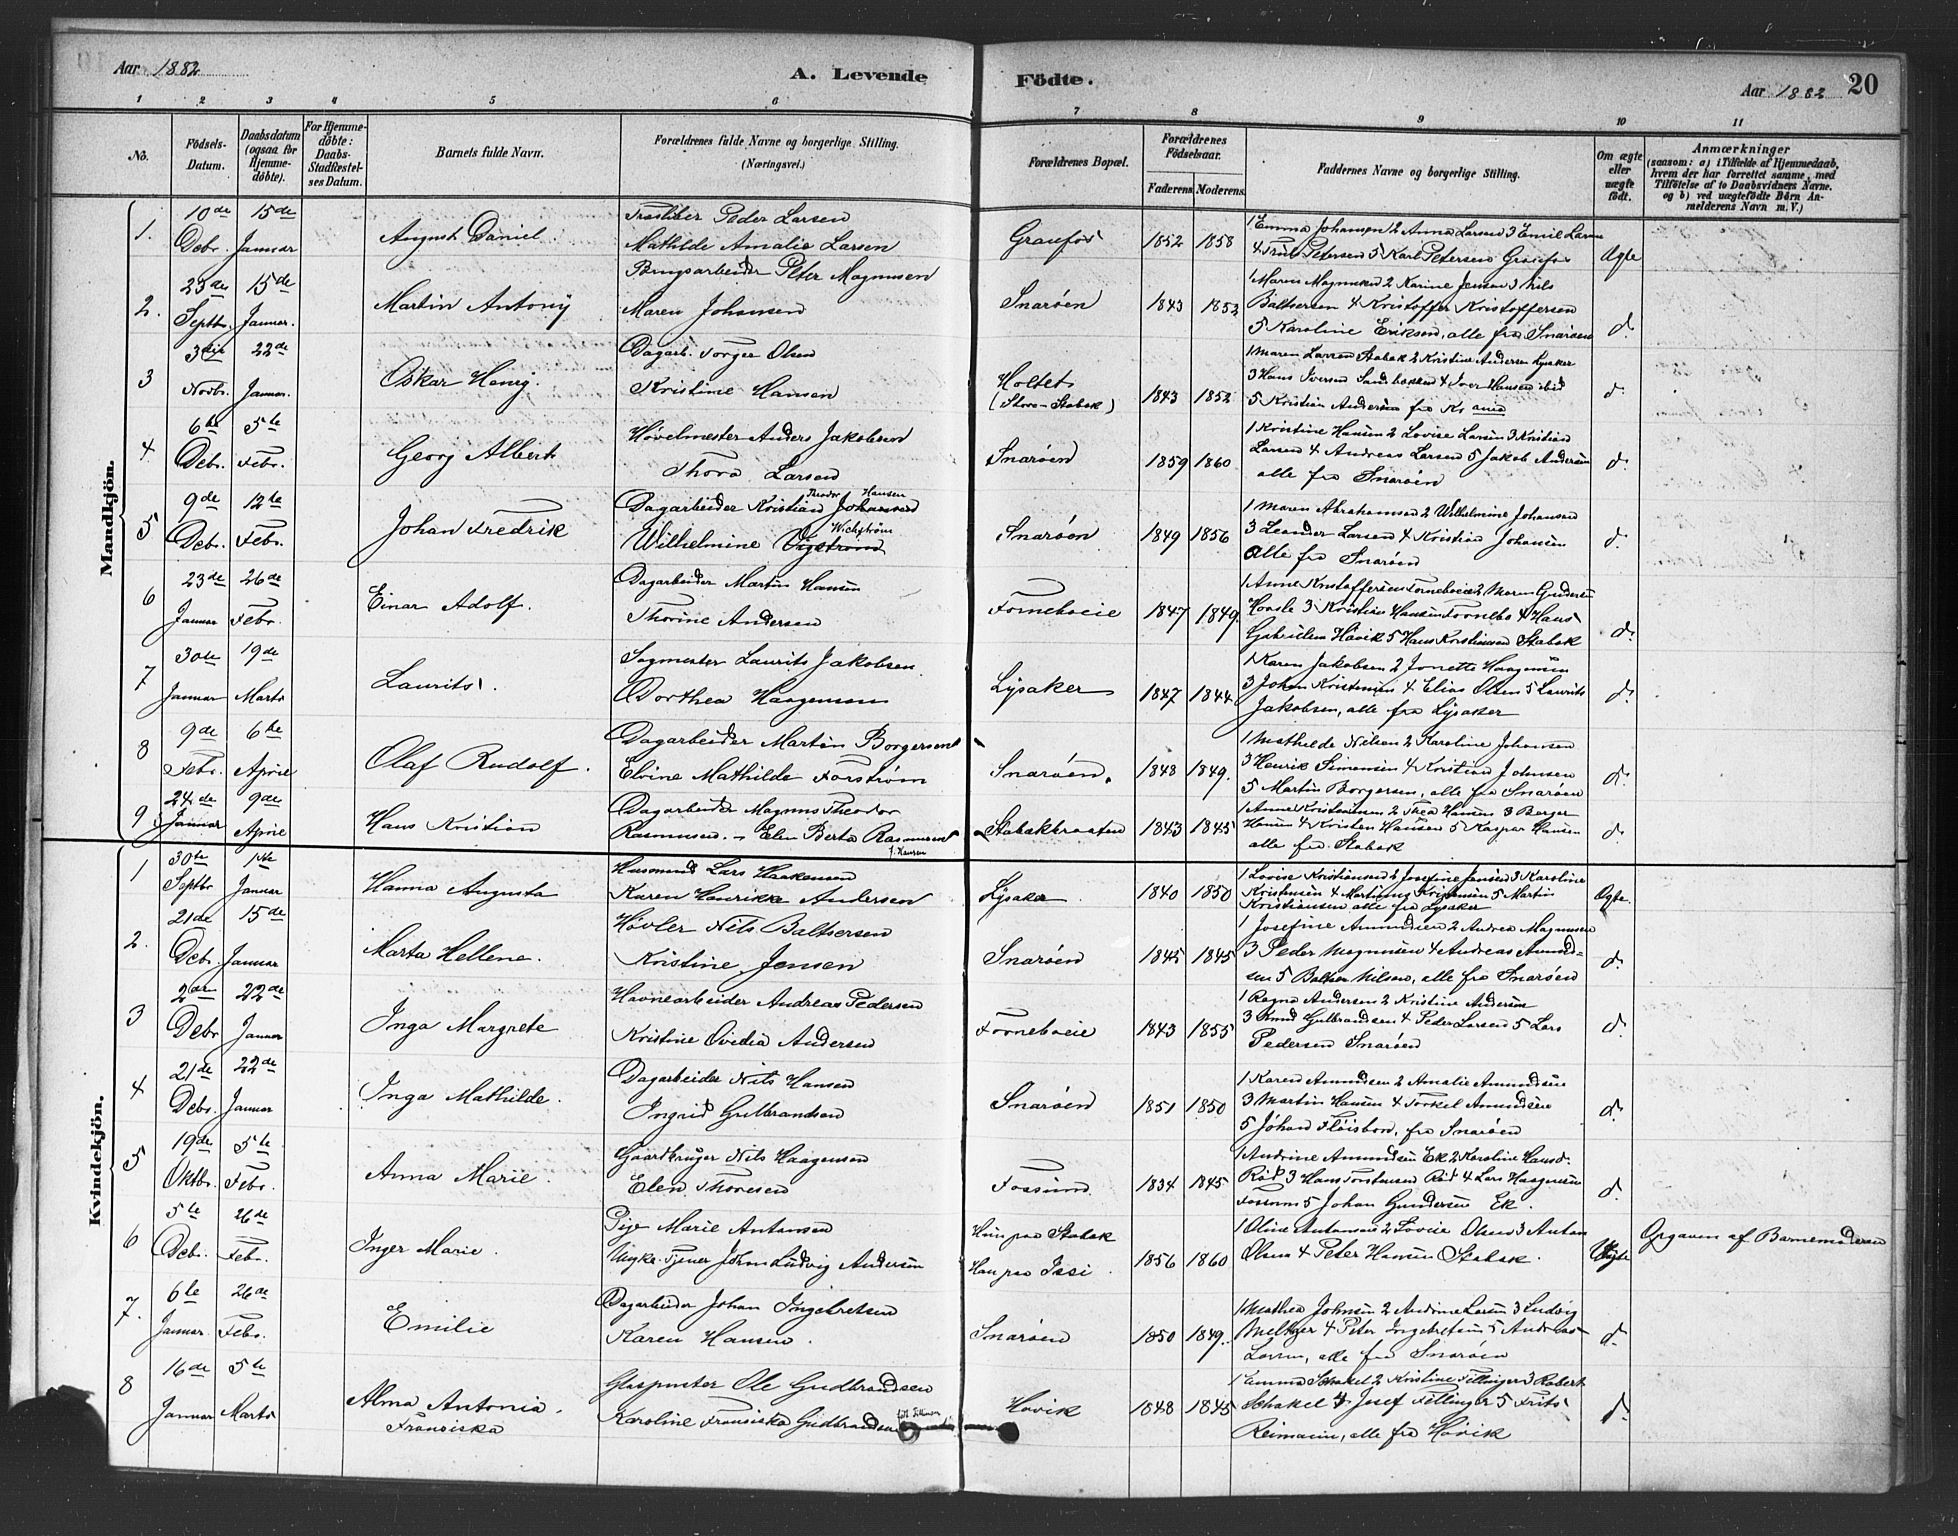 Aar 1882
A. Levende
1 2 3 4 5 6
No.
Födsels-Datum.
Daabsdatum (ogsaa for Hjemme-döbte).
For Hjemme-döbte: Daabs-Stadfæstel-ses Datum.
Barnets fulde Navn.
Forældrenes fulde Navne og borgerlige Stilling. (Næringsvei.)
Födte.
Aar 1882 20
7 8 9 10 11
Forældrenes Bopæl.
Forældrenes Födselsaar.
Faderens. Moderens.
Faddernes Navne og borgerlige Stilling.
Om ægte eller uægte födt.
Anmærkninger
(saasom: a) i Tilfælde af Hjemmedaab, hvem der har forrettet samme, med Tilföielse af to Daabsvidners Navne. og b) ved uægtefödte Börn An-melderens Navn m. V.)
Mandkjön.
1. 10de Debr. 15de Januar August Daniel Peder Larsen
Mathilde Amalie Larsen
1852 1858 1 Emma Johansen 2 Anna Larsen 3 Emil Larsen
4 Truls Petersen 5 Karl Petersen Ægte
2. 23de Septbr. 15de Januar. Martin Antony Brugsarbeider Peter Magnusen
Maren Johansen
Snarøen 1843 1852 1 Maren Magnusen 2 Karine Jensen 3 Nils
Baltsersen 4 Kristoffer Kristoffersen
5 Karoline Eriksen, alle fra Snarøen d.
3 3die Novbr. 22de Januar. Oskar Henry. Dagarb. Torger Olsen
Kristine Hansen
Holtet (Store-Stabæk) 1843 1852 1 Maren Larsen Stabæk 2 Kristine Andersen Lysaker
3 Hans Iversen Sandbakken 4 Iver Hansen ibid
5 Kristian Andersen fra Kr.ania d.
4 6te Debr. 5te Febr. Georg Albert Høvelmester Anders Jakobsen
Thora Larsen
Snarøen 1859 1860 1 Kristine Hansen 2 Lovise Larsen 3 Kristian
Larsen 4 Andreas Larsen 5 Jakob Andersen
alle fra Snarøen d.
5 9de Debr. 12te Febr. Johan Fredrik Dagarbeider Kristian Theodor Johansen Hansen
Wilhelmine Vigstrøm Wickstrøm
Snarøen 1849 1856 1 Maren Abrahamsen 2 Wilhelmine Johansen
3 Leander Larsen 4 Kristian Johansen
alle fra Snarøen d.
6 23de Januar 26de Febr. Einar Adolf. Dagarbeider Martin Hansen
Thorine Andersen
Forneboeie 1847 1849. 1 Anne Kristoffersen Forneboeie 2 Maren Gundersen
3 Kristine Hansen Fornebo 4 Hans
Gabrielsen Høvik 5 Hans Kristiansen Stabæk d.
7 30te Januar 19de Marts Laurits. Sagmester Laurits Jakobsen
Dorthea Haagensen
Lysaker 1847 1844 1 Karen Jakobsen 2 Jonette Haagensen
3 Johan Kristensen 4 Elias Olsen 5 Laurits
Jakobsen, alle fra Lysaker d.
8 9de Febr. 6te April Olaf Rudolf. Dagarbeider Martin Borgersen
Elvine Mathilde Forstrøm
Snarøen. 1848 1849. 1 Mathilde Nilsen 2 Karoline Johansen
3 Henrik Simensen 4 Kristian Johnsen
5 Martin Borgersen, alle fra Snarøen d.
9 24de Januar 9de April Hans Kristian Dagarbeider Magnus Theodor
Rasmussen. - Elen Berta Rasmussen
f. Hansen
Stabækbraaten 1843 1845 1 Anne Kristiansen 2 Thea Hansen 3 Borger
Hansen 4 Kristen Hansen 5 Kaspar Hansen
alle fra Stabæk d.
Kvindekjön.
1 30te Septbr 1ste Januar Hanna Augusta Husmand Lars Haakensen
Karen Henrikke Andersen
Lysaker. 1840 1850 1 Lovise Kristiansen 2 Josefine Jensen 3 Karoline
Kristensen 4 Martinius Kristensen 5 Martin
Kristiansen alle fra Lysaker Ægte.
2. 21de Debr. 15de Januar Marta Hellene. Høvler Nils Baltsersen
Kristine Jensen
Snarøen 1845 1845 1 Josefine Amundsen 2 Andrea Magnusen
3 Peder Magnusen 4 Andreas Amund-
sen 5 Baltser Nilsen, alle fra Snarøen d.
3 2den Debr 22de Januar Inga Margrete Havnearbeider Andreas Pedersen
Kristine Ovedia Andersen
Forneboeie 1843 1855 1 Ragna Andersen 2 Kristine Andersen
3 Knud Gulbrandsen 4 Peder Larsen 5 Lars
Pedersen Snarøen d.
4 21de Debr. 22de Januar Inga Mathilde. Dagarbeider Nils Hansen
Ingrid Gulbrandsen
Snarøen 1851 1850 1 Karen Amundsen 2 Amalie Amundsen
3 Martin Hansen 4 Torkel Amundsen
5 Johan Fløisbon, fra Snarøen d.
5 19de Oktbr. 5te Febr. Anna Marie. Gaardbruger Nils Haagensen
Elen Thoresen
Fossum. 1834 1845 1 Andrine Amundsen Ek 2 Karoline Hansd.
Rød 3 Hans Torstensen Rød 4 Lars Haagensen
Fossum 5 Johan Gundersen Ek. d.
6 5te Debr. 26de Febr. Inger Marie. Pige Marie Antonsen
Ungk. Tjener Johan Ludvig Andersen
Hun paa Stabæk
Han paa Issi. 1856 1860 1 Oline Antonsen 2 Lovise Olsen 3 Anton
Olsen 4 Peter Hansen Stabæk. Uægte Opgaven af Barnemoderen
7. 6te Januar. 26de Febr. Emilie Dagarbeider Johan Ingebretsen
Karen Hansen.
Snarøen 1850 1849. 1 Mathea Johnsen 2 Andrine Larsen 3 Ludvig
Meltzer 4 Peter Ingebretsen 5 Andreas
Larsen, alle fra Snarøen d.
8 16de Januar 5te Marts Alma Antonia.
Fransiska Glaspuster Ole Gudbrandsen
Karoline Fransiska Gudbrandsen
Høvik 1848 1845 1 Emma Schakel 2 Kristine Fillinger 3 Robert
Schakel 4 Josef Fellinger 5 Frits
Reimann, alle fra Høvik d.